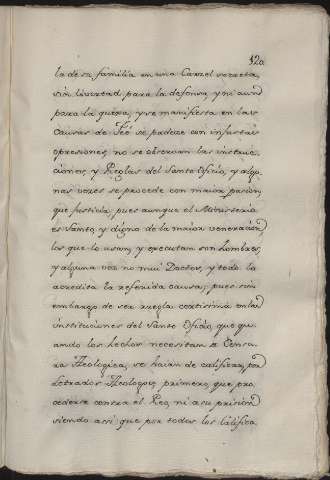 120
la de su familia en una Carzel secreta,
sin livertad para la defensa, y ni aun
para la quexa, y se manifiesta en las
Causas de Feé se padeze con injustas
opresiones, no se observan las instruc-
ciones, y Reglas del Santo Oficio, y algu-
nas vezes se procede con maior pasion,
que justicia, pues aunque el Ministerio
es Santo, y digno de la maior veneracion,
los que lo usan, y executan son hombres,
y alguna vez no mui Doctos, y todo lo
acredita la referida causa; pues sin
embargo de ser regla certisima en las
instituciones del Santo Oficio, que qu-
ando los hechos necesitan de Censu-
ra Theologica, se haian de calificar por
Letrados Theologos, primero, que pro-
cederse contra el Reo, ni a su prision
siendo asi que por todos los Califica